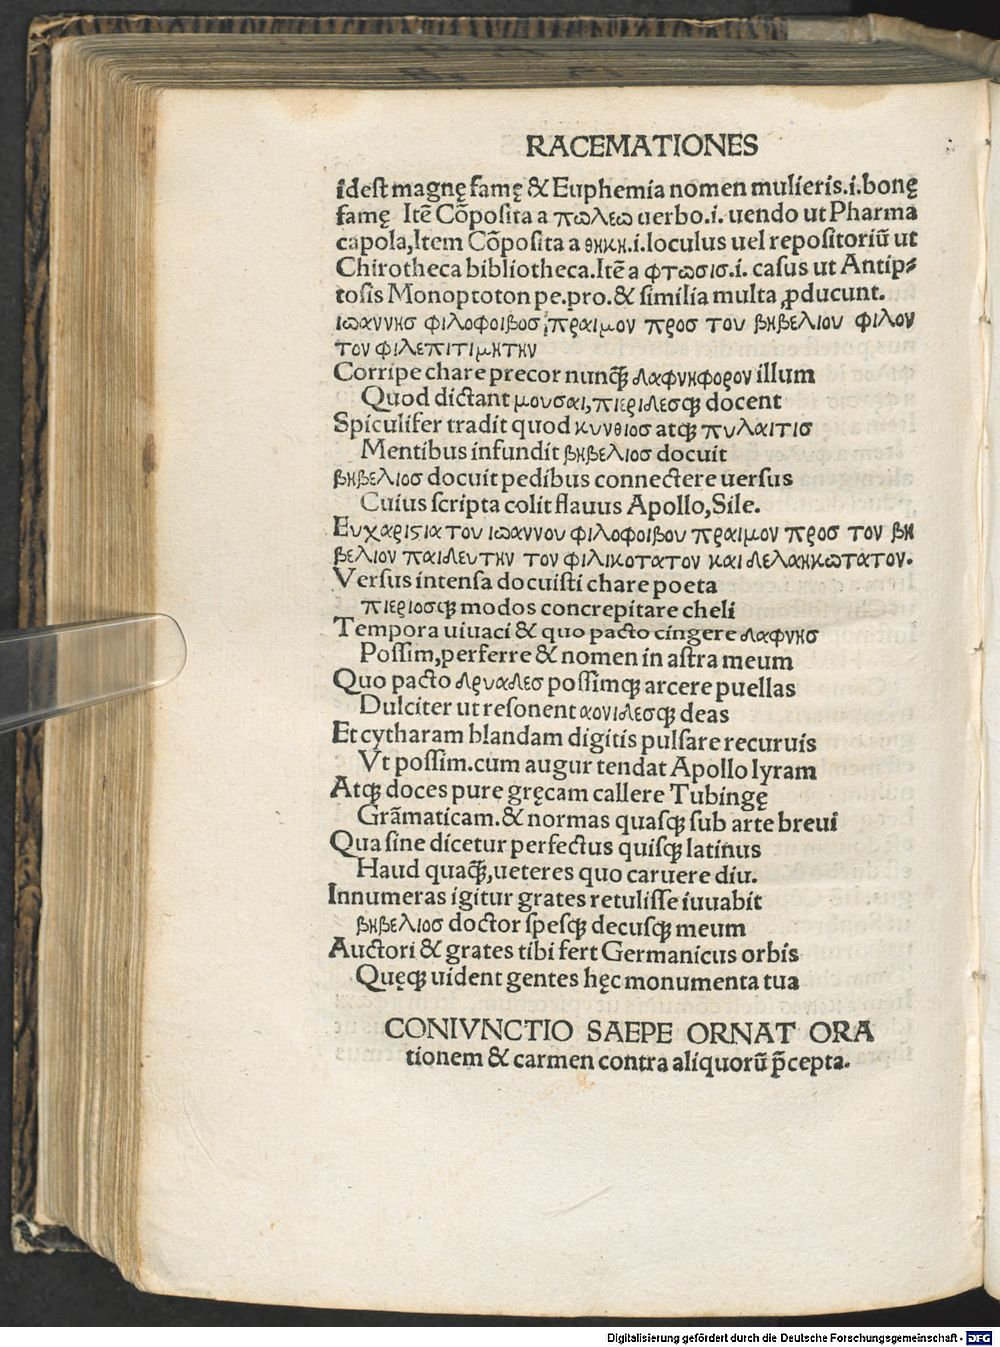 RACEMATIONES
idest magnę famę & Euphemia nomen mulieris.i.bonę
famę Itē Cōposita a πωλεω uerbo.i. uendo ut Pharma
capola,Item Cōposita a θηκη.i.loculus uel repositoriū ut
Chirotheca bibliotheca.Itē a φτωσισ.i. casus ut Antip⸗
tosis Monoptoton pe.pro.& similia multa ꝓducunt.
ιωαννησ φιλοφοιβοσ πραιμον προσ του βηβελιου φιλον
τον φιλεπιτιμητην
Corripe chare precor nunq̄ꝫ δαφνηφορον illum
Quod dictant μουσαι,πιεριδεσqꝫ docent
Spiculifer tradit quod κυνθιοσ atqꝫ πυλαιτισ
Mentibus infundit βηβελιοσ docuit
βηβελιοσ docuit pedibus connectere uersus
Cuius scripta colit flauus Apollo,Sile.
Ευχαριϛια του ιωαννου φιλοφοιβου πραιμον προσ τον βη
βελιον παιδευτην τον φιλικοτατον και δελαηκωτατον.
Versus intensa docuisti chare poeta
πιεριοσqꝫ modos concrepitare cheli
Tempora uiuaci & quo pacto cingere δαφνησ
Possim,perferre & nomen in astra meum
Quo pacto δρυαδεσ possimqꝫ arcere puellas
Dulciter ut resonent αονιδεσqꝫ deas
Et cytharam blandam digitis pulsare recuruis
Vt possim.cum augur tendat Apollo lyram
Atqꝫ doces pure gręcam callere Tubingę
Grāmaticam.& normas quasqꝫ sub arte breui
Qua sine dicetur perfectus quisqꝫ latinus
Haud quaq̄ꝫ,ueteres quo caruere diu.
Innumeras igitur grates retulisse iuuabit
βηβελιοσ doctor spesqꝫ decusqꝫ meum
Auctori & grates tibi fert Germanicus orbis
Quęqꝫ uident gentes hęc monumenta tua
CONIVNCTIO SAEPE ORNAT ORA
tionem & carmen contra aliquorū p̄cepta.
Digitalisierung gefördert durch die Deutsche Forschungsgemeinschaft - DFG